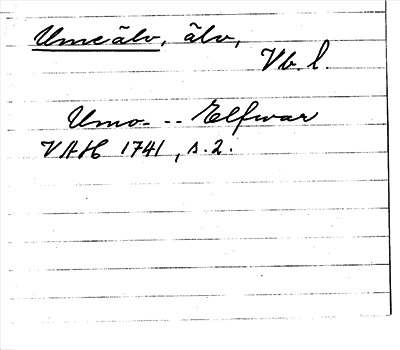 Umeälv, älv,
Vb. l.
Umo- -- Elfwar
VAH 1741, s. 2.